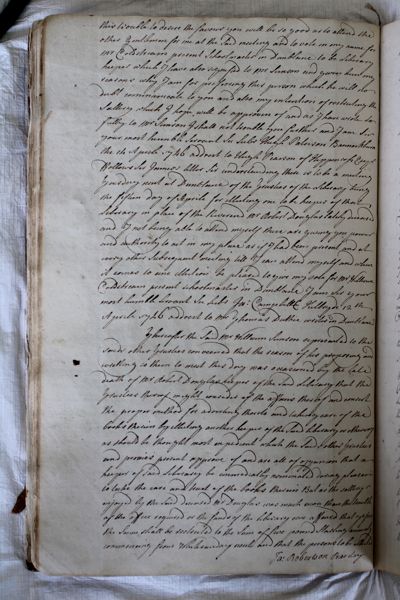 this trouble to desire the favour you will be so good as to attend the
other Gentlemen for me at the said meeting and to vote in my name for
Mr Coldstream present Schoolmaster in Dumblane to be Library
keeper which I have also signified to Mr Simson and given him my
reasons why I am for preferring this person which he will no
doubt communicate to you and also my intentions of restricting the
Sallery which I hope will be approven of and as I have wrote so
fully to Mr Simson I shall not trouble you further and I am Sir
your most humble servant Sic Subs Hugh Paterson Bannockburn
the Aprile 1746 addrest to Hugh Pearson of
follows Sir understanding there is to be a meeting
next at Dumblane of the Trustees of the Library
the fifteen day of Aprile for electing one to be keeper of the
Library in place of the Reverend Mr Robert Douglas lately deceased
and I not being able to attend myself these are giving you power
and authority to act in my place as if I had been present and at
every other Subsequent meeting till I can attend myself and when
it comes to ane election be pleased to give my vote for Mr William
Coldstream present schoolmaster in Dumblane I am Sir your
most humble Servant Sic Subs Campbell 12
Aprile 1746 addrest to Mr Thomas Duthie writer in Dumblane
Thereafter the said Mr William Simson represented to the
said other Trustees conveened that the reason of his proposing and
writing to them to meet this day was occasioned by the late
death of Mr Robert Douglas keeper of the said Library that the
Trustees thereof might consider of the affairs thereof and consert
the proper method for a orderly and taking care of the
books therein by electing another keeper of the said Library
as should be thought most expedient which the said other Trustees
and present approve of and are all of opinion that a
keeper of said Library be immediately nominated
to take the care and trust of the books therein But as the sallery
enjoyed by the said deceast Mr Douglas was much more than the
of the office required or the funds of the Library can afford that
the same shall be restricted to the sum of five pound Sterling
commencing from Whitsunday next and that the person to be
Ja: Robertson